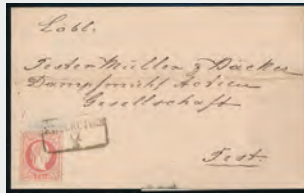 Löbl.
Pester Müller & Bäcker
Dampfmühl Actien
Gesellschaft
Pest.